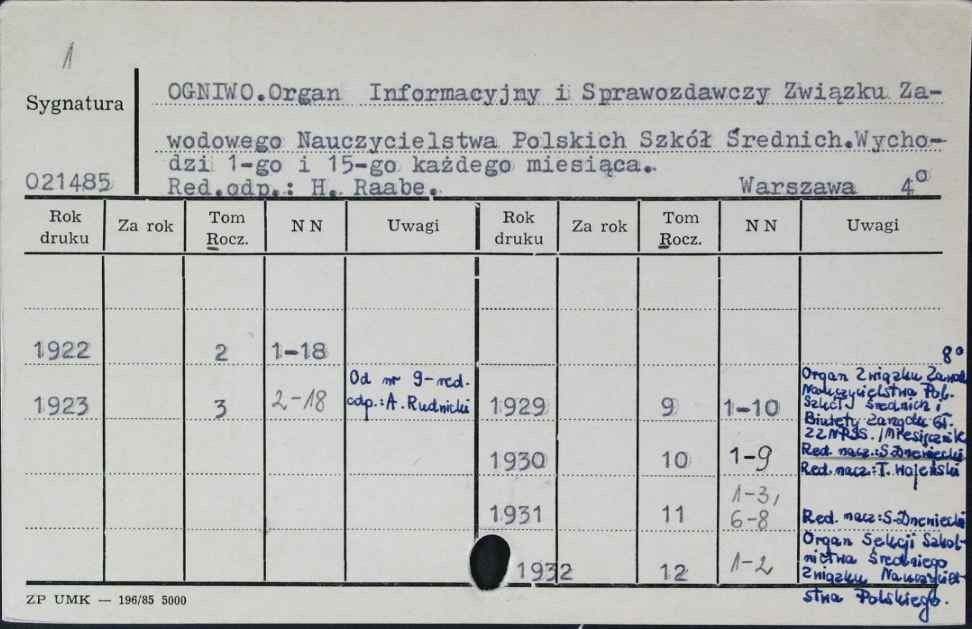 1
OGNIWO.Organ Informacyjny i Sprawozdawczy Związku Za-
Sygnatura
wodowego Nauczycielstwa Polskich Szkół Średnich.Wycho-
dzi 1-go i 15-go każdego miesiąca.
021485 Red.odp.: H. Raabe. Warszawa 4°
Rok druku Za rok Tom Rocz. N N Uwagi Rok druku Za rok Tom Rocz. N N Uwagi
1922 2 1-18
8°
1923 3 2-18
Od nr 9-red.
odp.: A. Rudnicki
1929 9 1-10
Organ Związku Zawod.
Nauczycielstwa Pol.
Szkół Średnich i
Zarządu Gł.
ZZNPSS. /Miesięcznik
1930 10 1-9
Red. nacz.:
Red. nacz.: T. Wojeński
1931 11 1-3,
6-8
Red. nacz.:
1932 12 1-2
Organ Sekcji Szkol-
nictwa Średniego
Związku Nauczyciel-
stwa Polskiego.
ZP UMK — 196/85 5000